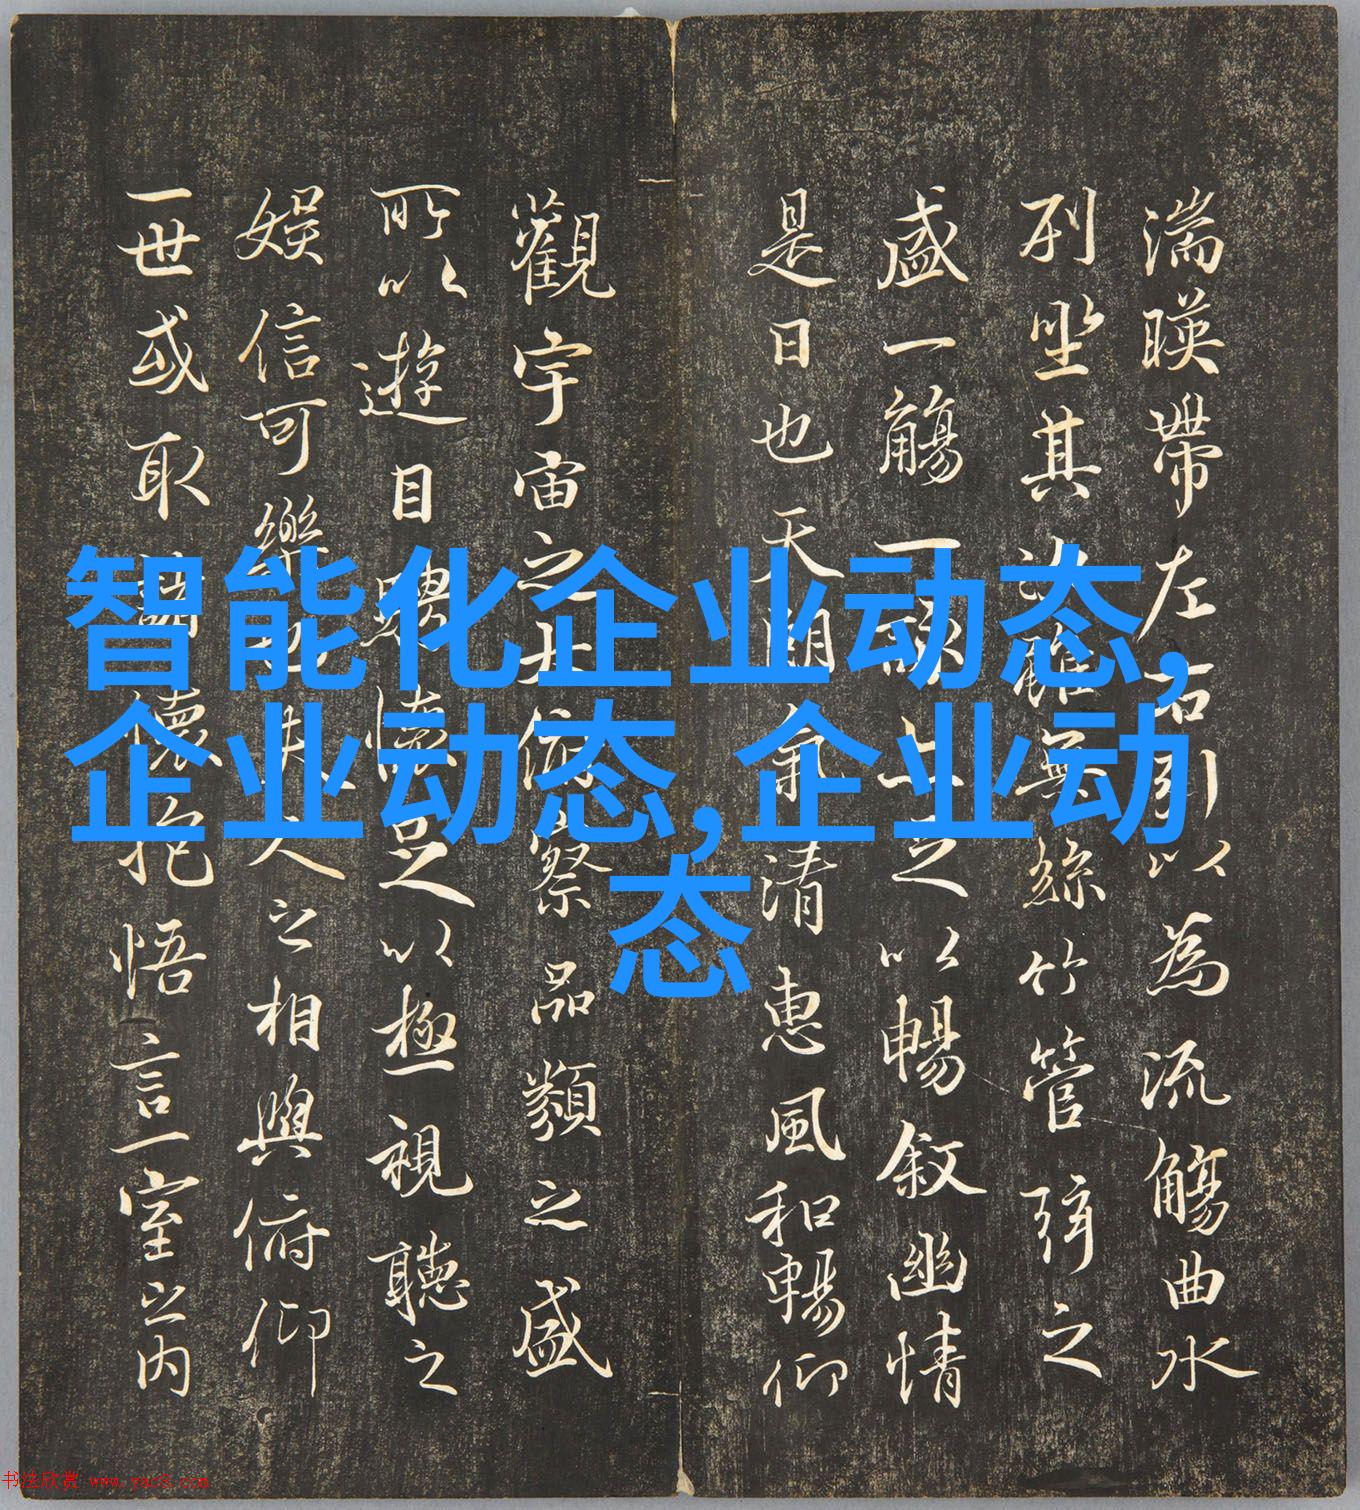 湍暎帶左右引以為流觴曲水
列坐其次雖無絲竹管弦之
盛一觴一詠亦足以暢敘幽情
是日也天朗氣清惠風和暢仰
觀宇宙之大俯察品類之盛
所以遊目騁懷足以極視聽之
娛信可樂也夫人之相與俯仰
一世或取諸懷抱悟言一室之内
智能化企业动态,
企业动态,企业动
态
书法欣赏 www.yac8.com